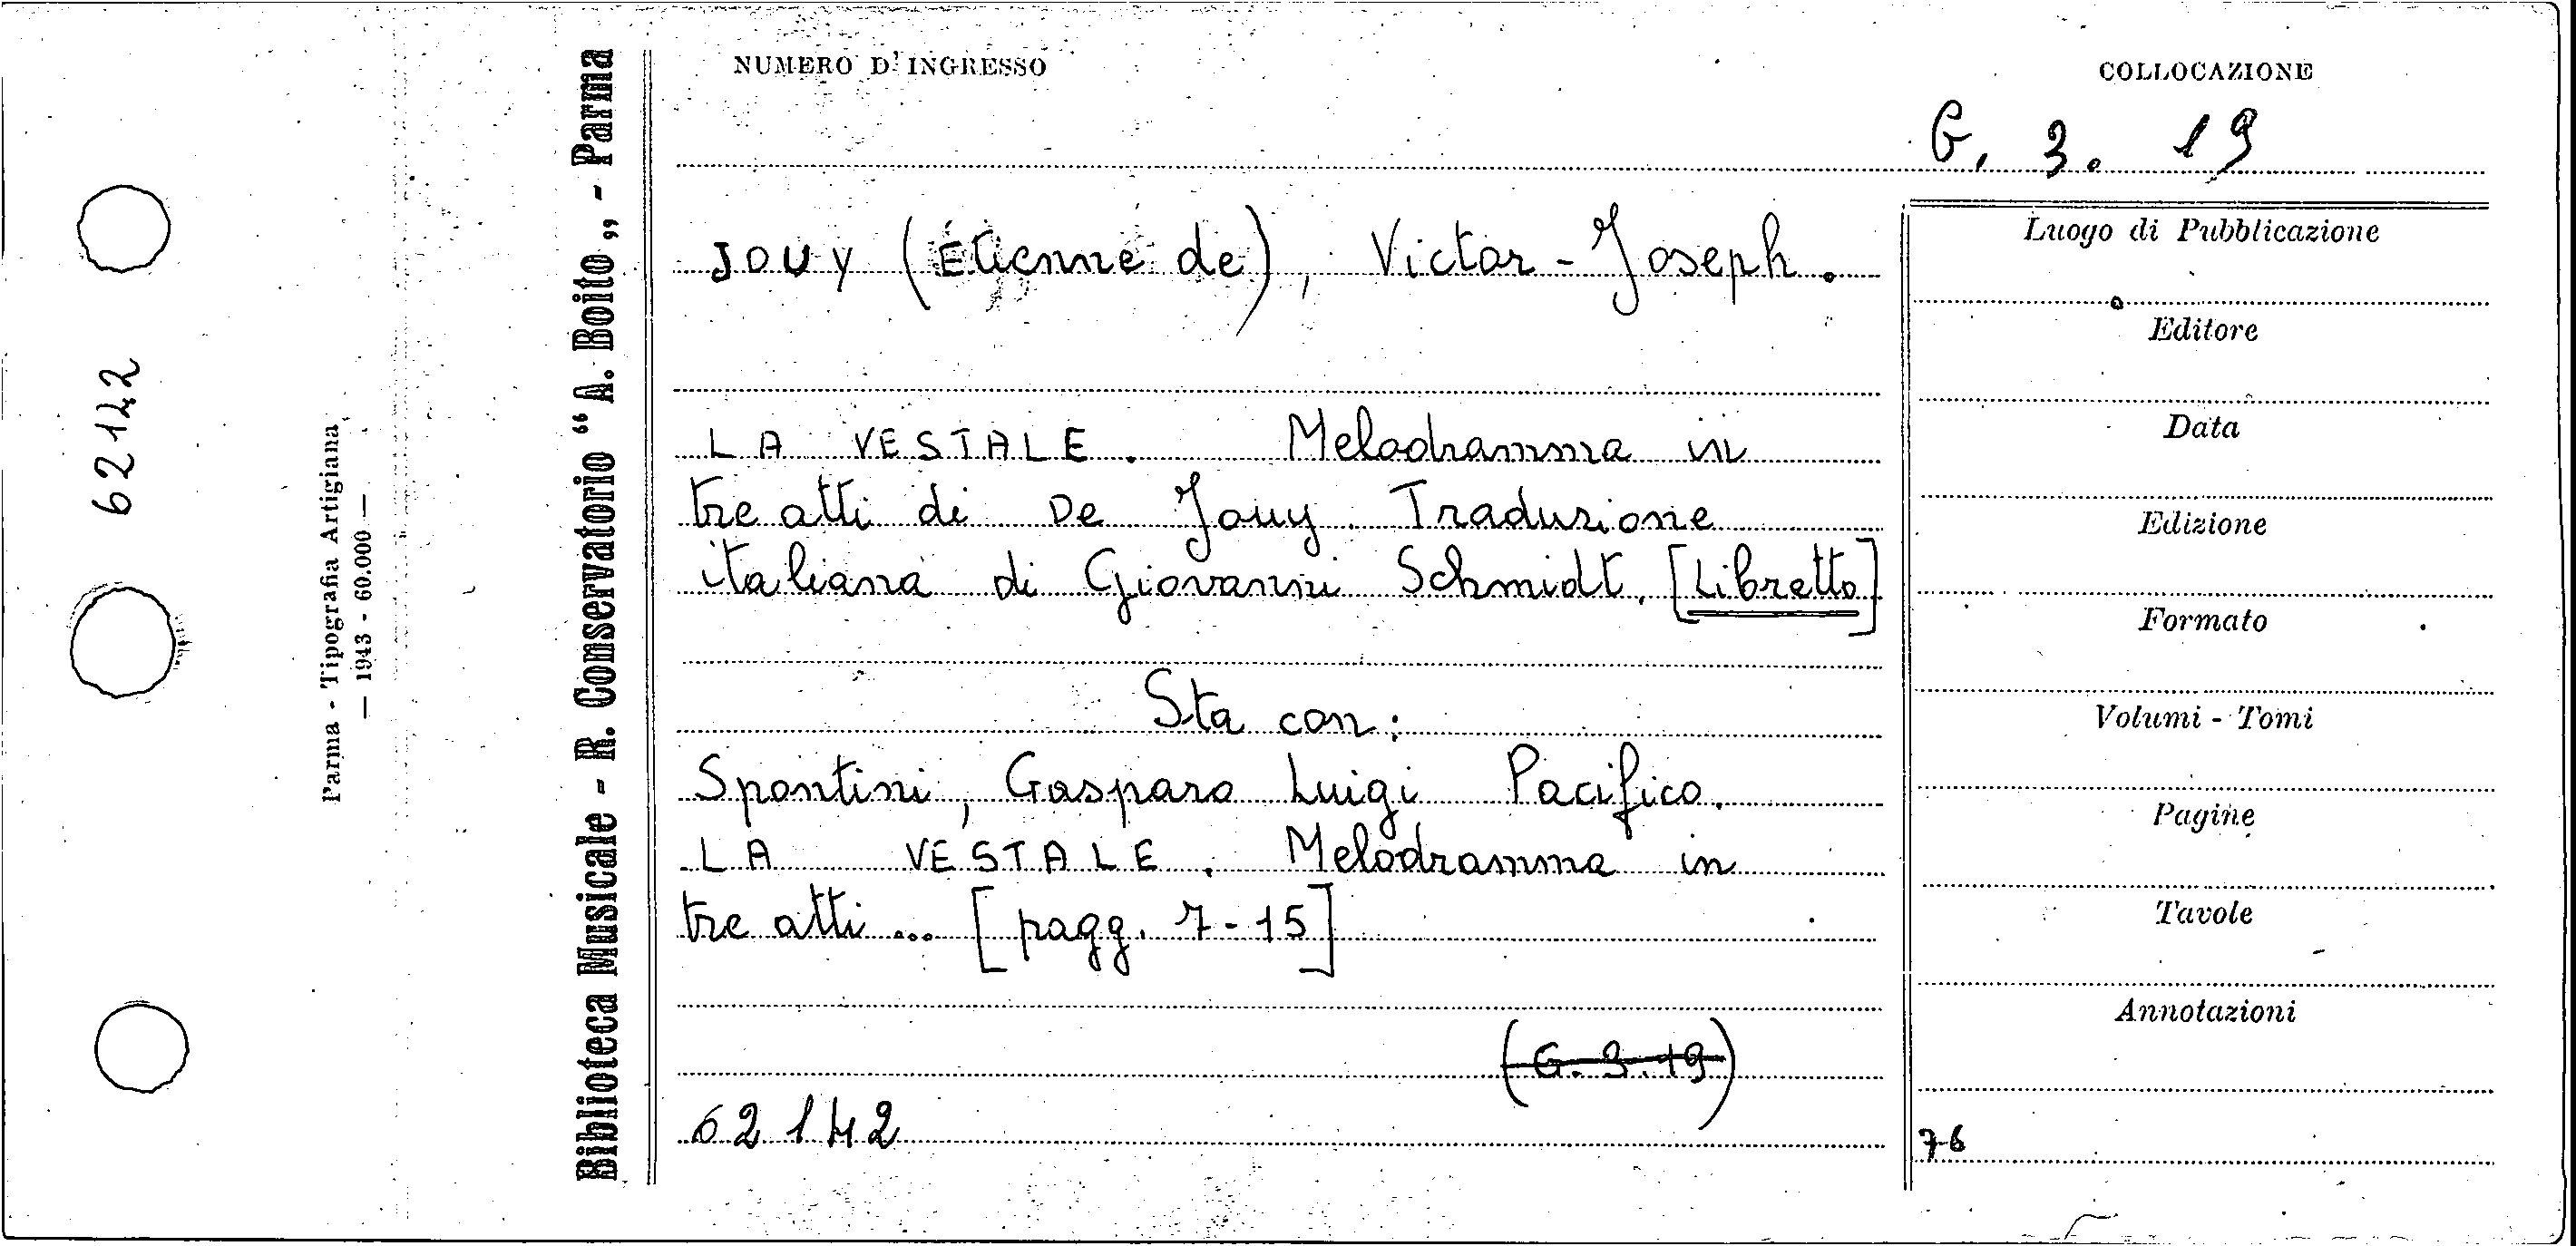 NUMERO D'INGRESSO
COLLOCAZIONE
G. 3. 19
JOUY (Étienne de), Victor-Joseph.
LA VESTALE. Melodramma in
tre atti di De Jouy. Traduzione
italiana di Giovanni Schmidt. [Libretto]
Sta con:
Spontini, Gasparo Luigi Pacifico.
LA VESTALE. Melodramma in
tre atti ... [pagg. 7-15]
(G. 3. 19)
62142
Luogo di Pubblicazione
Editore
Data
Edizione
Formato
Volumi - Tomi
Pagine
Tavole
Annotazioni
76
Biblioteca Musicale - R. Conservatorio “A. Boito„ - Parma
Parma - Tipografia Artigiana
— 1943 - 60.000 —
62142